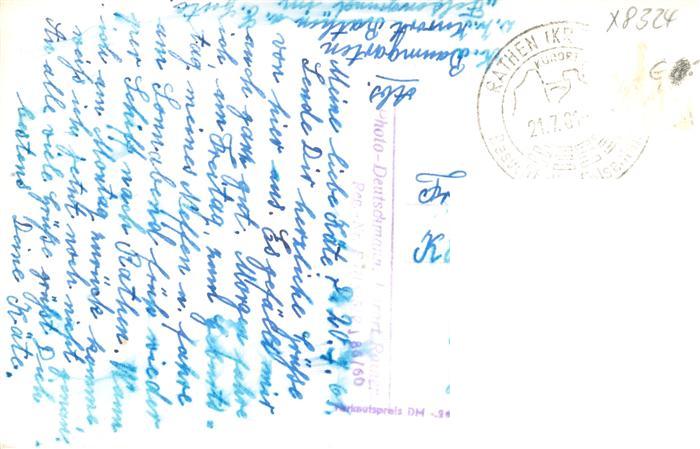 X8324
RATHEN (KR
KURORT
21.7.61
Abs.
K. Baumgarten
z. Zt. Kurort Rathen
Meine liebe Käte! d. 20.7.61
Sende Dir herzliche Grüße
von hier aus. Es gefällt mir
auch ganz gut. Morgen fahre
ich am Freitag, zum Geburts-
tag meines Neffen u. fahre
am Sonnabend früh wieder
per Schiff nach Rathen. Wann
ich am Montag zurück komme,
weiß ich jetzt noch nicht genau.
An alle viele Grüße grüßt Dich
bestens Deine Käte.
Photo-Deutschmann, Kurort Rathen
88/60
Verkaufspreis DM